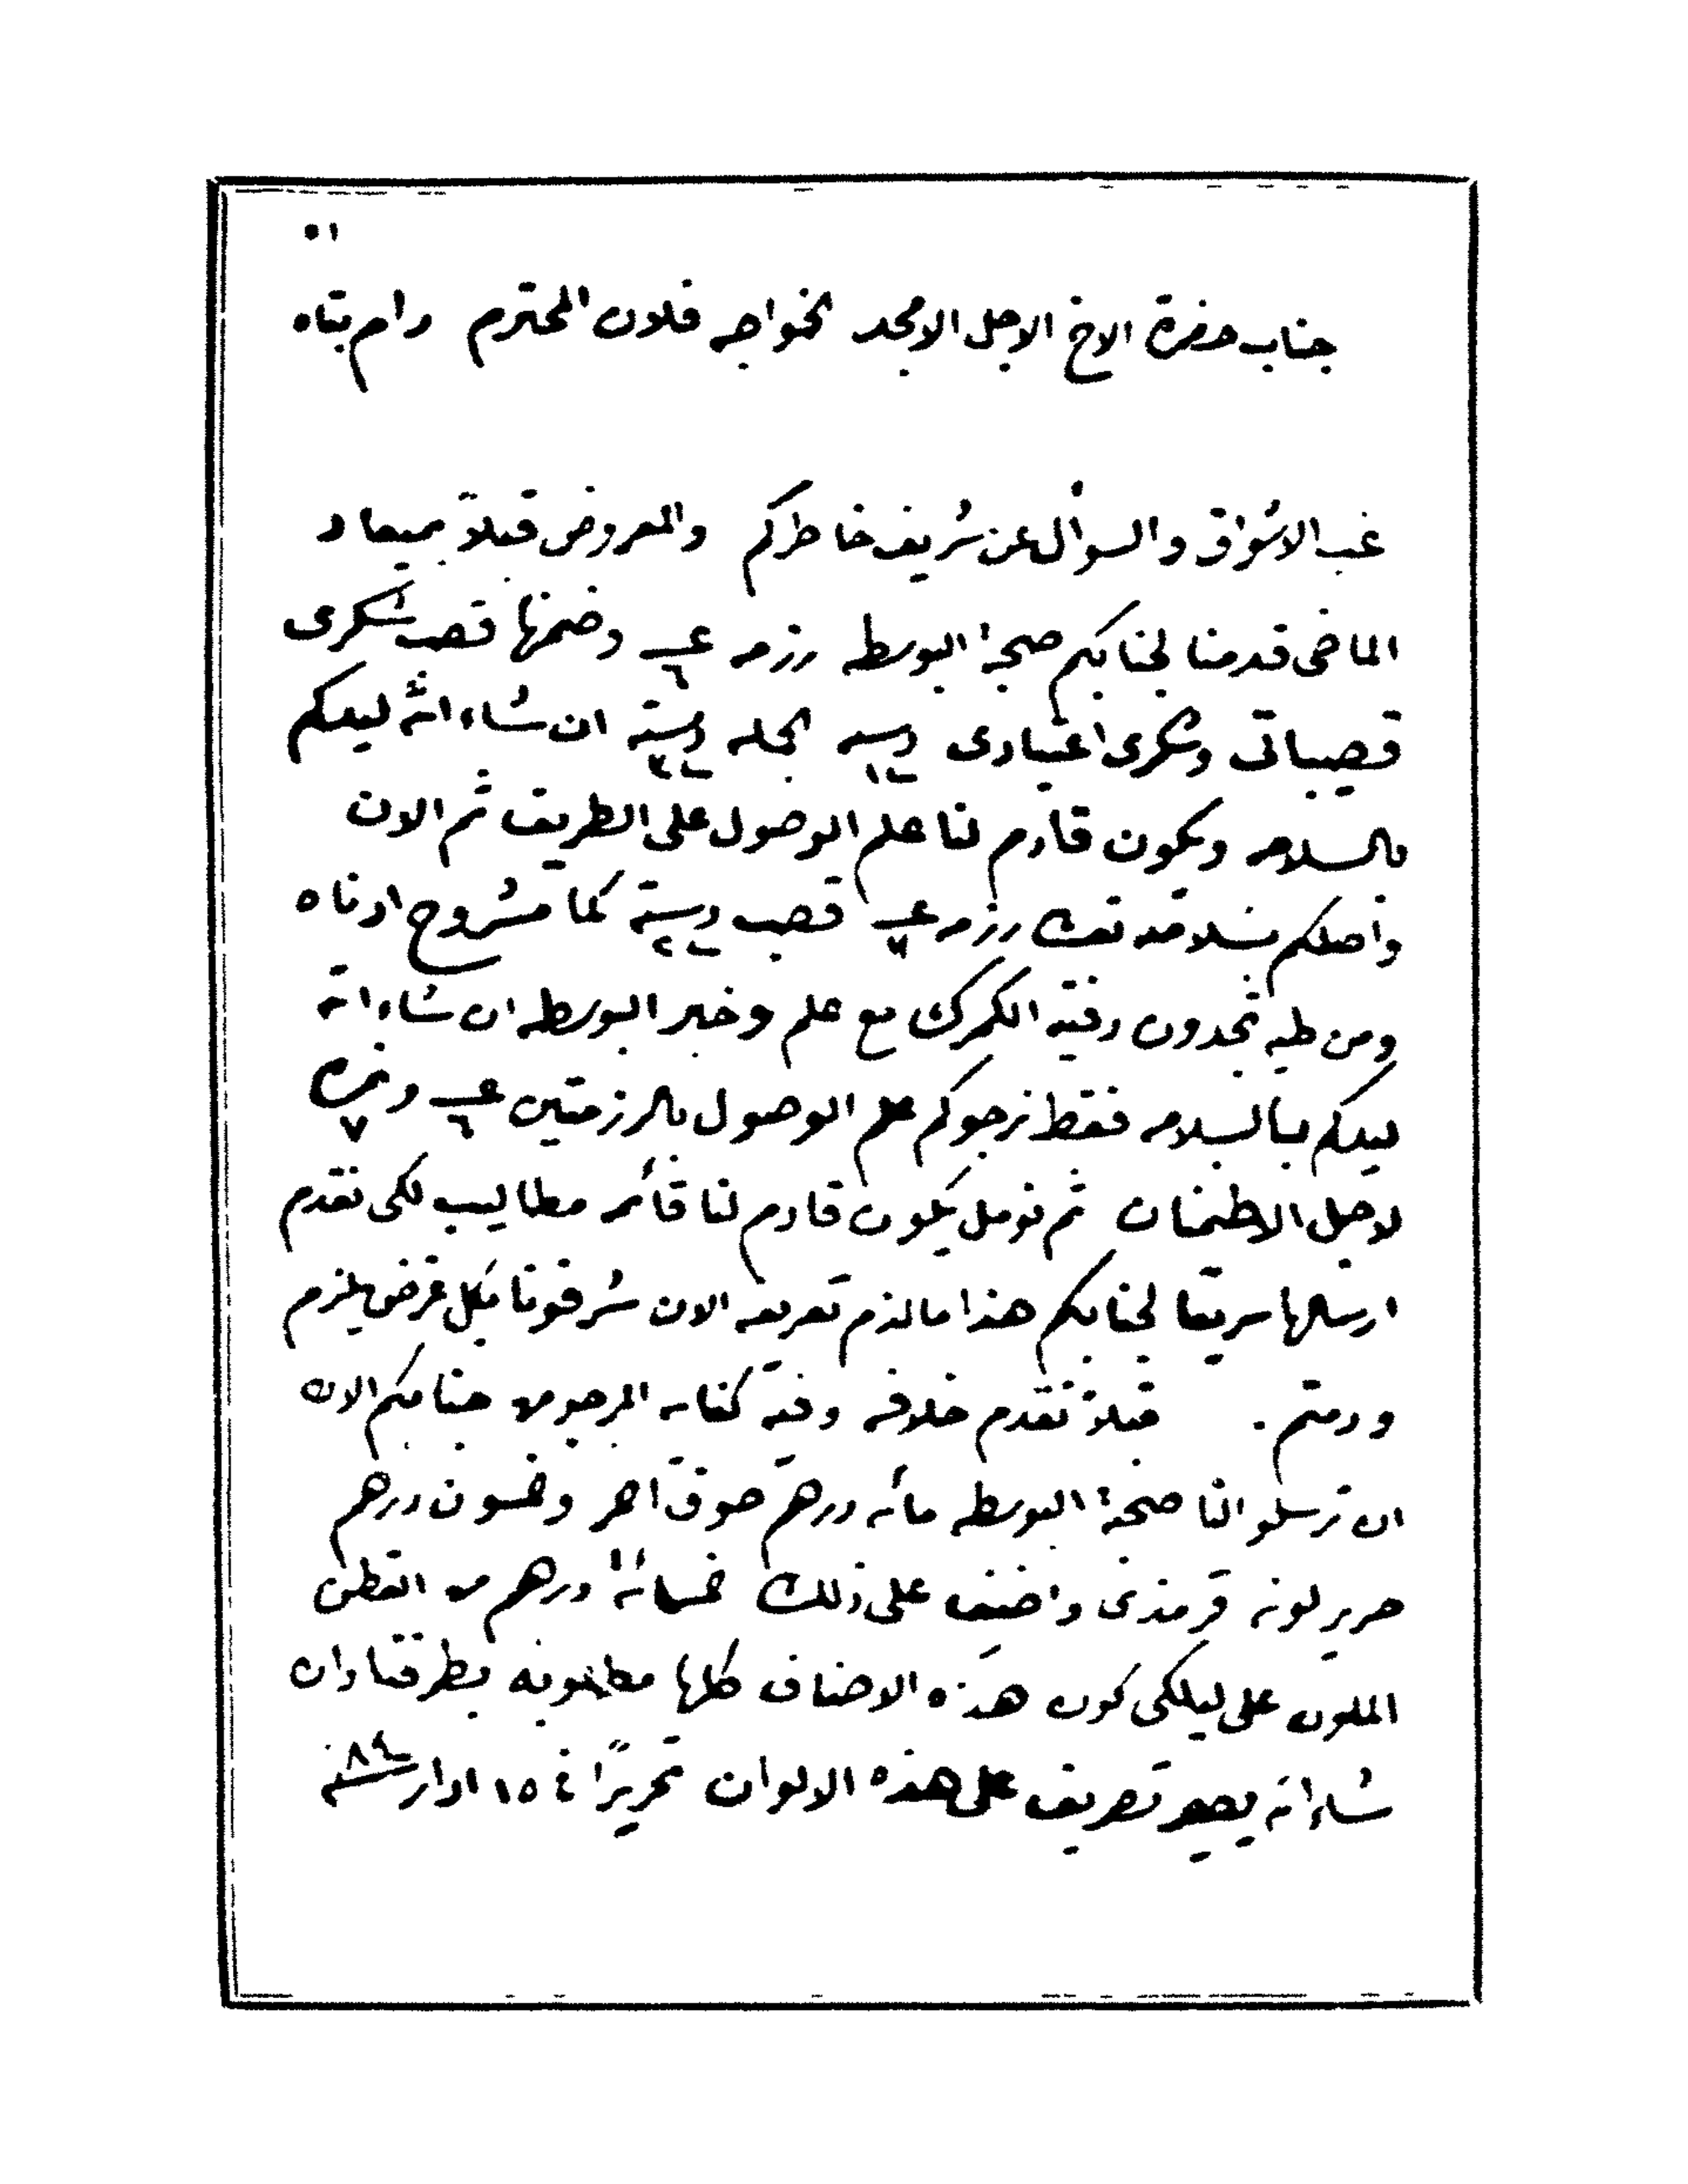 جناب حضرة الاخ الاجل الامجد الخواجه فلان المحترم دام بقاه
غب الاشواق والسوأل عن شريف خاطركم والمعروض قبلاً بميعاد
الماضى قدمنا لجنابكم صحبة البوسطه رزمه عــ ٦ وضمنها قصب شكرى
قصباتى وشكرى اعتيادى الجمله ان شاء الله ليدكم
بالسلامه ويكون قادم لنا علم الوصول على الطريق ثم الان
واصلكم بسلامته تعالى رزمه عــ ٧ قصب كما مشروح ادناه
ومن طيه تجدون رفتية الكمرك مع علم وخبر البوسطه ان شاء الله
ليدكم بالسلامه فقط نرجوكم علم الوصول بالرزمتين عــ ٦ ونمره ٧
لاجل الاطمنان ثم نومل يكون قادم لنا قأئمه مطاليب لكى نقدم
ارسالها سريعا لجنابكم هذا ما لزم تعريفه الان شرفونا بكل غرض يلزم
ودمتم . قبلاً نقدم خلافه وفيه كفايه المرجو من جنابكم الان
ان ترسلو النا صحبة البوسطه مأئه درهم صوف احمر وخمسون درهم
حرير لونه قرمذى واضيف على ذلك خمسمائة درهم من القطن
الملون على ليلكى كون هذه الاصناف كلها مطلوبه بطرفنا وان
شاء الله يصير تصريف على هذه الالوان تحريرًا في ١٥ ادار سنة ٨٤